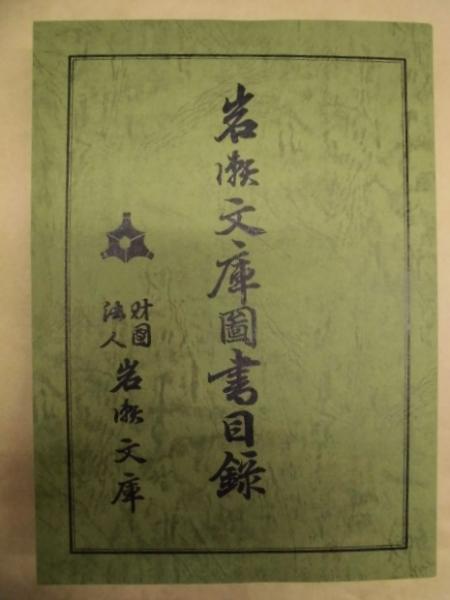 岩瀬文庫圖書目録
財團
法人
岩瀬文庫